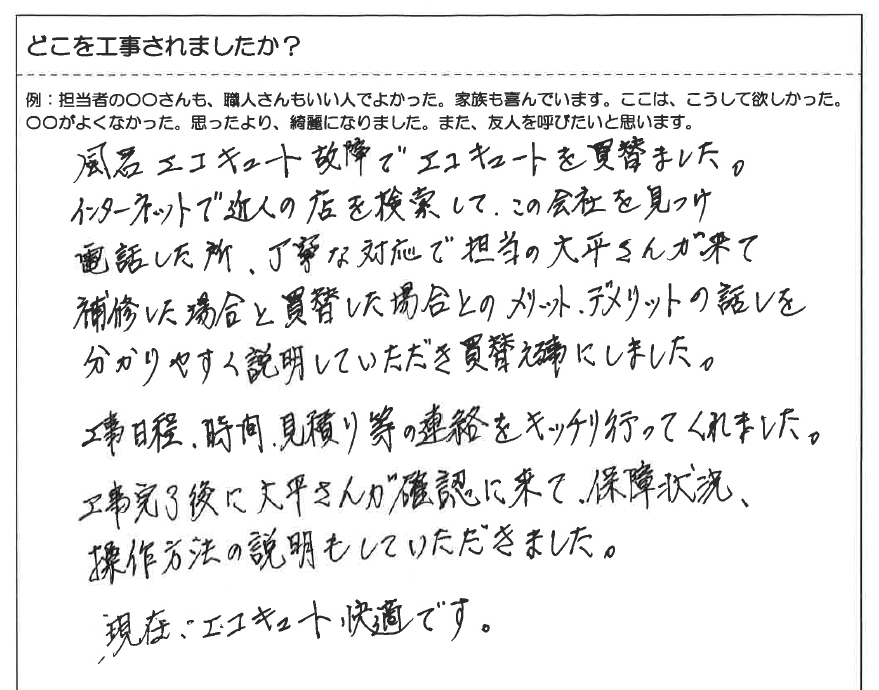 どこを工事されましたか？
例：担当者の〇〇さんも、職人さんもいい人でよかった。家族も喜んでいます。ここは、こうして欲しかった。
〇〇がよくなかった。思ったより、綺麗になりました。また、友人を呼びたいと思います。
風呂エコキュート故障でエコキュートを買替ました。
インターネットで近人の店を検索して、この会社を見つけ
電話した所、丁寧な対応で担当の大平さんが来て
補修した場合と買替した場合とのメリット、デメリットの話しを
分かりやすく説明していただき買替え事にしました。
工事日程、時間、見積り等の連絡をキッチリ行ってくれました。
工事完了後に大平さんが確認に来て、保障状況、
操作方法の説明もしていただきました。
現在、エコキュート快適です。